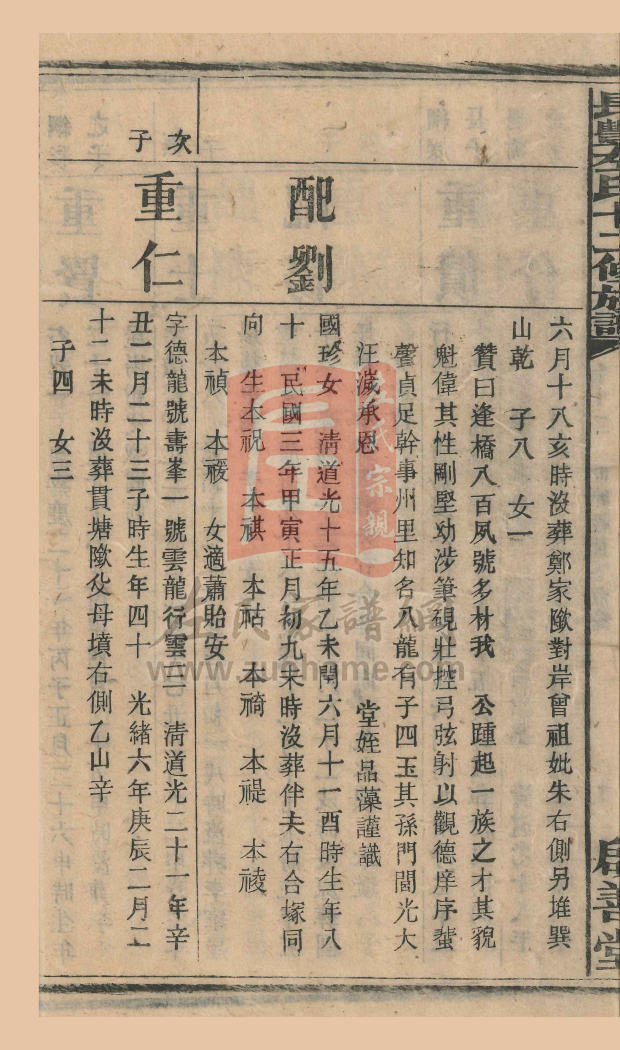 長豐左氏十二修族譜
啟善堂
六月十八亥時沒葬鄭家隞對岸曾祖妣朱右側另堆巽
山乾 子八 女一
贊曰逢橋八百夙號多材我 公踵起一族之才其貌
魁偉其性剛堅幼涉筆硯壯控弓弦射以觀德庠序蜚
聲貞足幹事州里知名八龍有子四玉其孫門閭光大
汪濊承恩 堂姪品藻謹識
配劉
國珍女 淸道光十五年乙未閏六月十一酉時生年八
十 民國三年甲寅正月初九未時沒葬伴夫右合塚同
向 生本祝 本祺 本祜 本禍 本禔 本祾
本禎 本禐 女適蕭貽安
次子
重仁
字德龍號壽峯一號雲龍行雲三 淸道光二十一年辛
丑二月二十三子時生年四十 光緒六年庚辰二月二
十二未時沒葬貫塘隞父母墳右側乙山辛
子四 女三
左氏宗親
左氏家譜網
www.zuohome.com